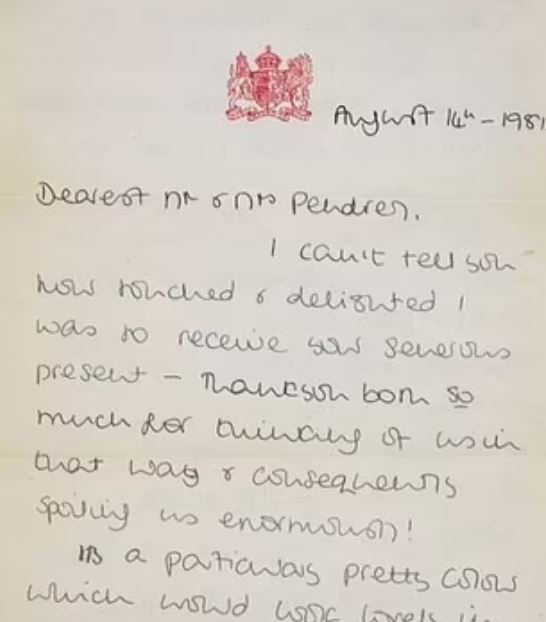 August 14th - 1981
Dearest Mr & Mrs Pendrey.
I can't tell you
how touched & delighted I
was to receive your generous
present - Thankyou both so
much for thinking of us in
that way & consequently
spoiling us enormously!
Its a particularly pretty colour
which would look lovely in